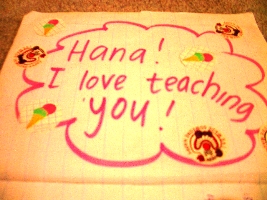 Hana!
I love teaching
you!